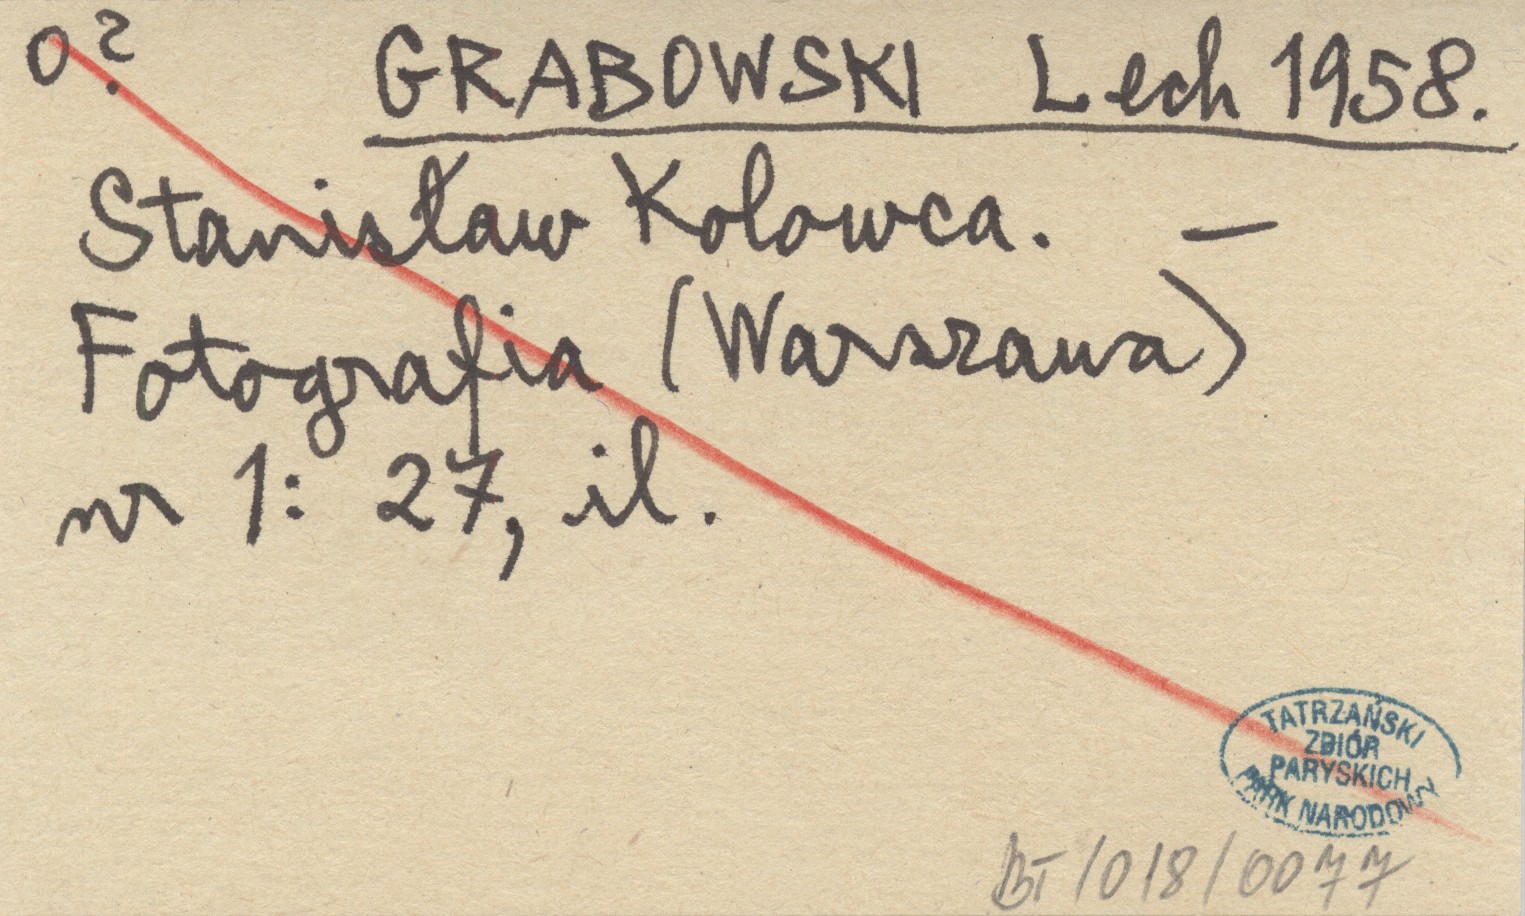 O?
GRABOWSKI Lech 1958.
Stanisław Kolowca. —
Fotografia (Warszawa)
nr 1: 27, il.
TATRZAŃSKI
ZBIÓR
PARYSKICH
PARK NARODOWY
BT/018/0077